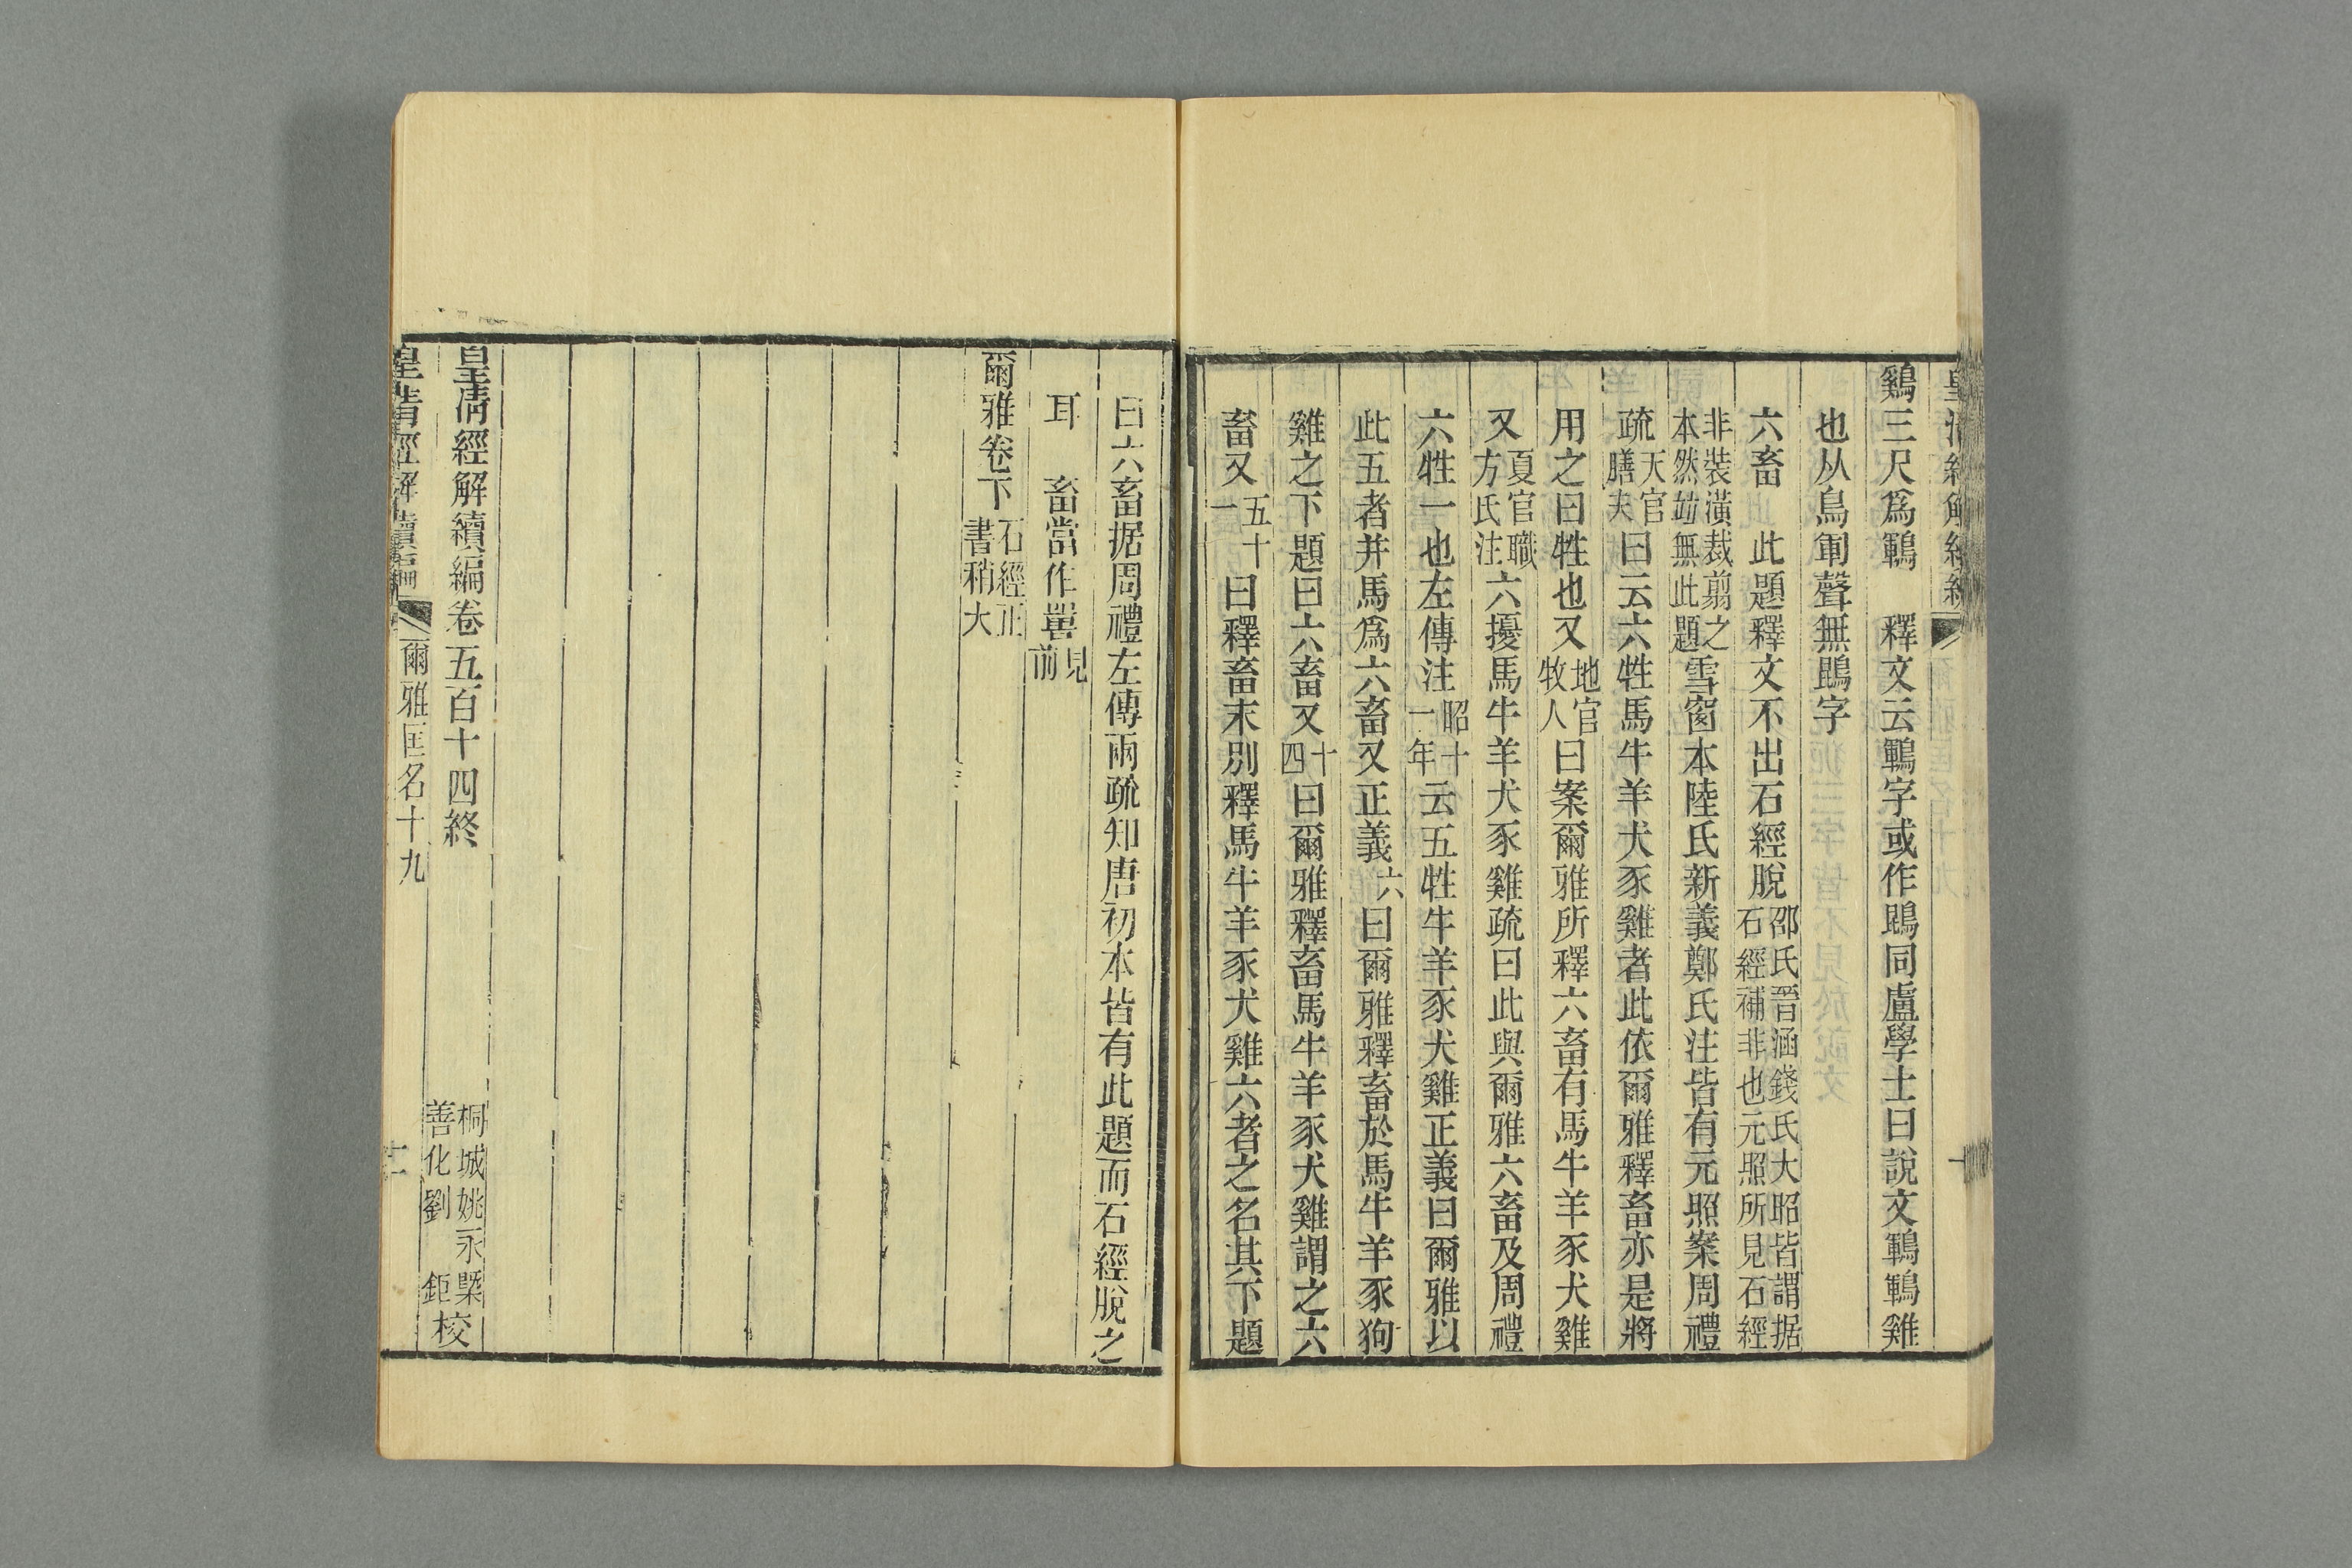 鷄三尺爲鶤　釋文云鶤字或作鵾同盧學士曰說文鶤鶤雞
也从鳥軍聲無鵾字
六畜　此題釋文不出石經脫邵氏晉涵錢氏大昭皆謂据石經補非也元照所見石經
非裝潢裁翦之本然竝無此題雪窗本陸氏新義鄭氏注皆有元照案周禮
疏天官膳夫曰云六牲馬牛羊犬豕雞者此依爾雅釋畜亦是將
用之曰牲也又地官牧人曰案爾雅所釋六畜有馬牛羊豕犬雞
又夏官職方氏注六擾馬牛羊犬豕雞疏曰此與爾雅六畜及周禮
六牲一也左傳注昭十一年云五牲牛羊豕犬雞正義曰爾雅以
此五者并馬爲六畜又正義六曰爾雅釋畜於馬牛羊豕狗
雞之下題曰六畜又十四曰爾雅釋畜馬牛羊豕犬雞謂之六
畜又五十一曰釋畜末別釋馬牛羊豕犬雞六者之名其下題
曰六畜据周禮左傳兩疏知唐初本皆有此題而石經脫之
耳　畜當作嘼見前
爾雅卷下石經正書稍大
皇淸經解續編卷五百十四終
桐城姚永㮣
善化劉　鉅校
皇清經解續編　爾雅匡名十九　十二